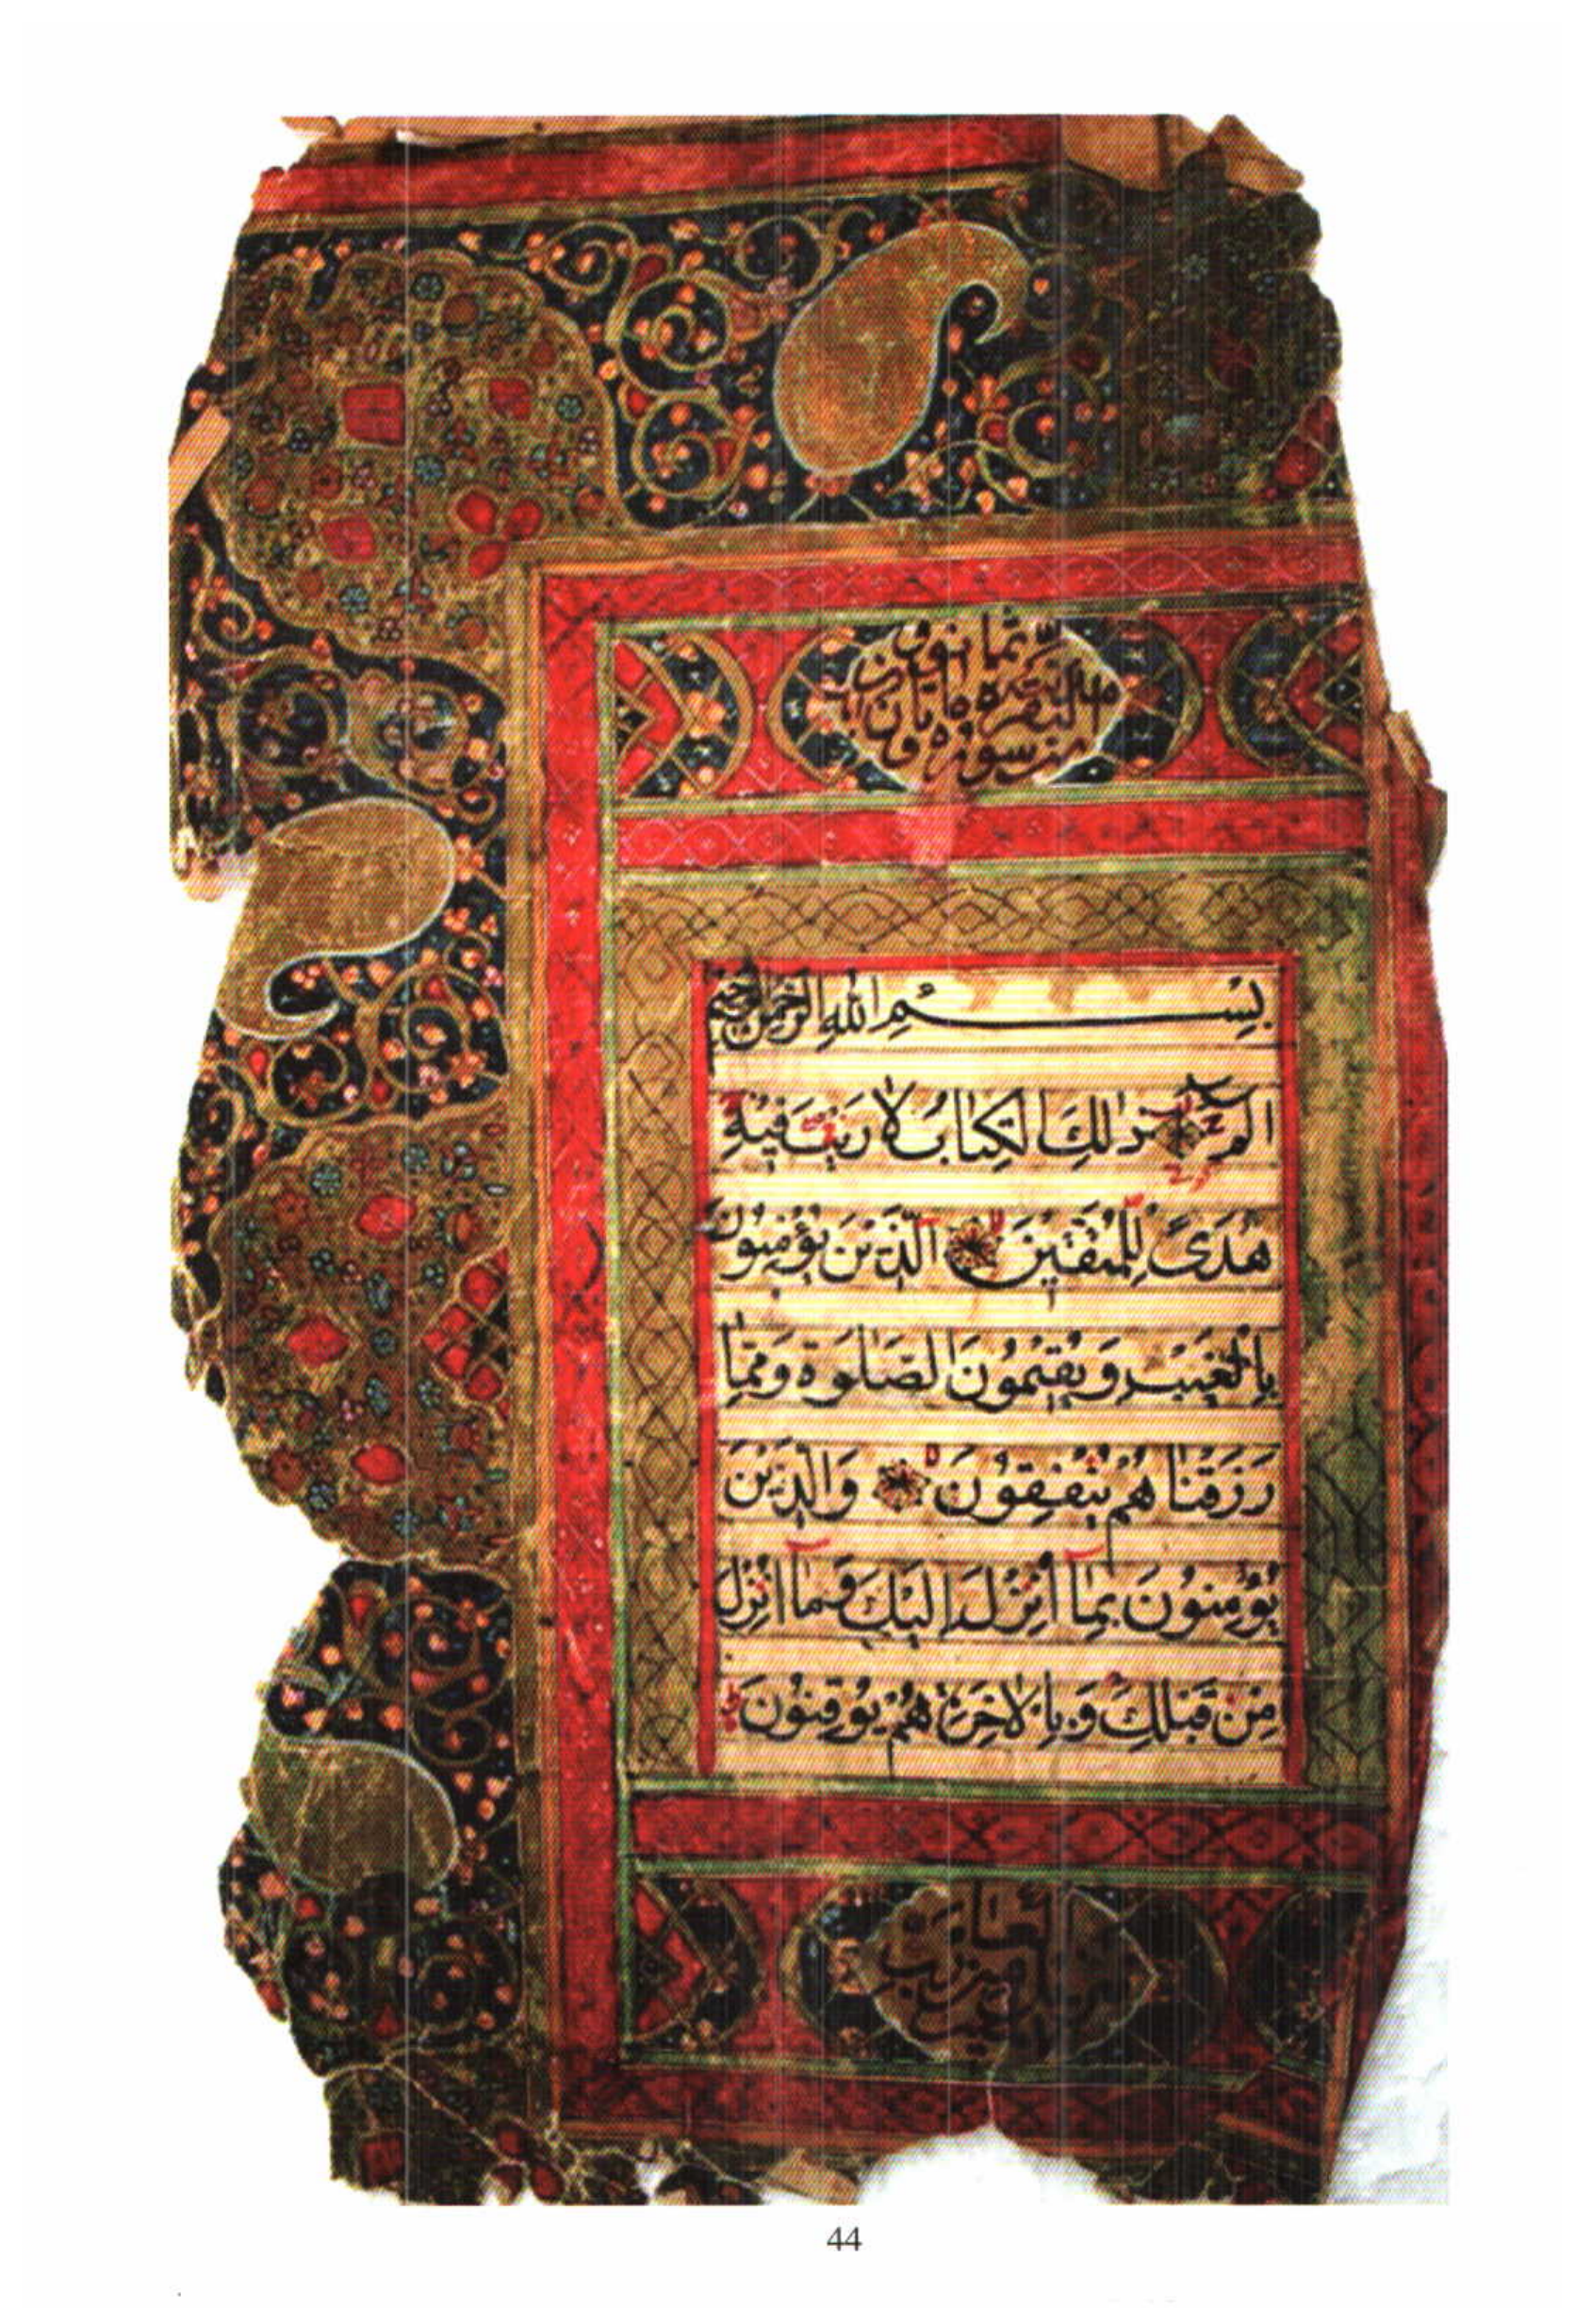 سورة البقرة مائتان و ثمانون
بِسْمِ اللهِ الرَّحْمٰنِ الرَّحِيْمِ
الٓمٓ ذٰلِكَ الْكِتَابُ لَا رَيْبَ فِيْهِ
هُدًى لِّلْمُتَّقِيْنَ الَّذِيْنَ يُؤْمِنُوْنَ
بِالْغَيْبِ وَيُقِيْمُوْنَ الصَّلٰوةَ وَمِمَّا
رَزَقْنَاهُمْ يُنْفِقُوْنَ وَالَّذِيْنَ
يُؤْمِنُوْنَ بِمَآ اُنْزِلَ اِلَيْكَ وَمَآ اُنْزِلَ
مِنْ قَبْلِكَ وَبِالْاٰخِرَةِ هُمْ يُوْقِنُوْنَ
44